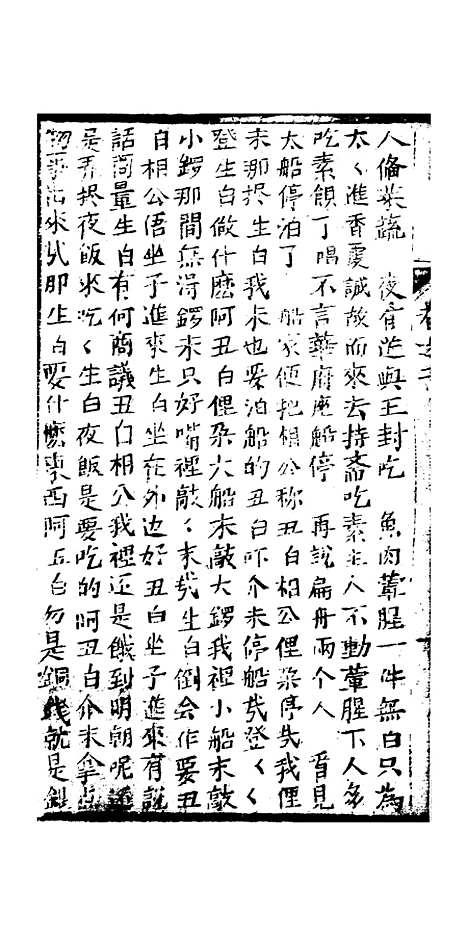 人俻菜蔬　夜膏造與王封吃　魚肉葷腥一件無白只為
太〻進香要誠故而來去持斋吃素主人不動葷腥下人多
吃素飯了　唱不言華府座船停　再說扁舟兩个人　看見
太船停泊了　船家便把相公称丑白相公俚朶停哉我俚
末那捹生白我末也要泊船的丑白吓介末停船哉登〻〻
登生白做什麽阿丑白俚朶大船末敲大鑼我裡小船末敲
小鑼那間無得鑼末只好嘴裡敲〻末哉生白倒会作耍丑
白相公俉坐子進來生白坐在外边好丑白坐子進來有說
話商量生白有何商議丑白相公我裡还是餓到明朝呢还
是弄捹夜飯來吃〻生白夜飯是要吃的阿丑白介末拿点
物事出來哉那生白要什麽東西阿丑白勿是銅錢就是銀